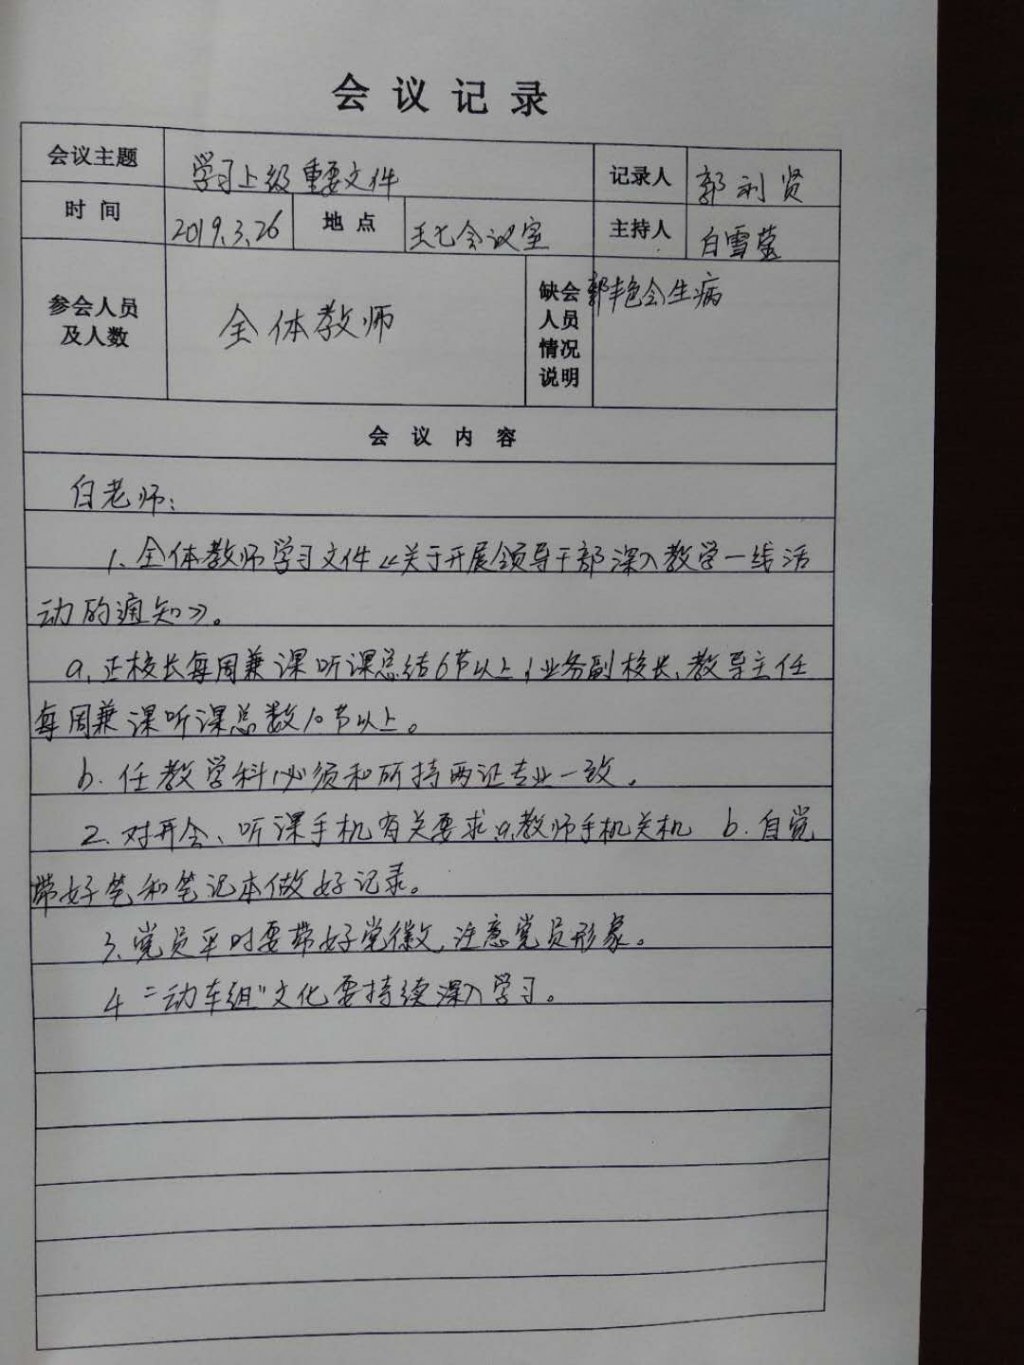 会议记录
会议主题 学习上级重要文件 记录人 郭利贤
时间 2019.3.26 地点 会议室 主持人 白雪莹
参会人员及人数 全体教师 缺会人员情况说明 郭艳会生病
会议内容
白老师:
1、全体教师学习文件《关于开展领导干部深入教学一线活
动的通知》。
a、正校长每周兼课听课总结6节以上,业务副校长、教导主任
每周兼课听课总数10节以上。
b.任教学科必须和所持两证专业一致。
2、对开会、听课手机有关要求 a、教师手机关机 b.自觉
带好笔和笔记本做好记录。
3、党员平时要带好党徽,注意党员形象。
4 "动车组"文化要持续深入学习。